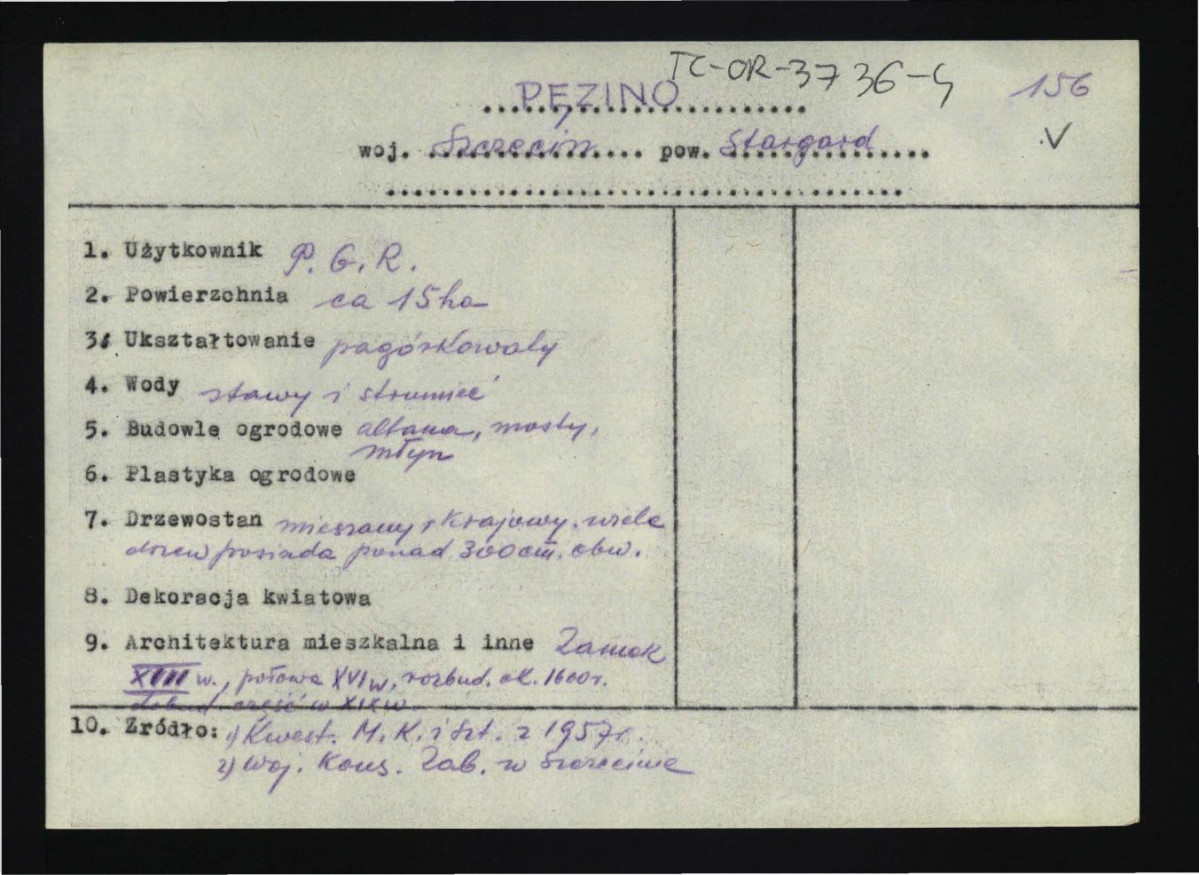 TC-OR-3736-4
156
PĘZINO
woj. Szczecin pow. Stargard
V
1. Użytkownik P. G. R.
2. Powierzchnia ca 15ha
3. Ukształtowanie pagórkowaty
4. Wody stawy i strumień
5. Budowle ogrodowe altana, mosty,
młyn
6. Plastyka ogrodowe
7. Drzewostan mieszany i krajowy, wiele
drzew posiada ponad 300cm. obw.
8. Dekoracja kwiatowa
9. Architektura mieszkalna i inne Zamek
w., połowa XVI w, rozbud. ok. 1600r.
dobud. część w XIX w.
10. Zródło: 1) Kwest. M. K. i Szt. z 1957r.
2) Woj. Kons. Zab. w Szczecinie